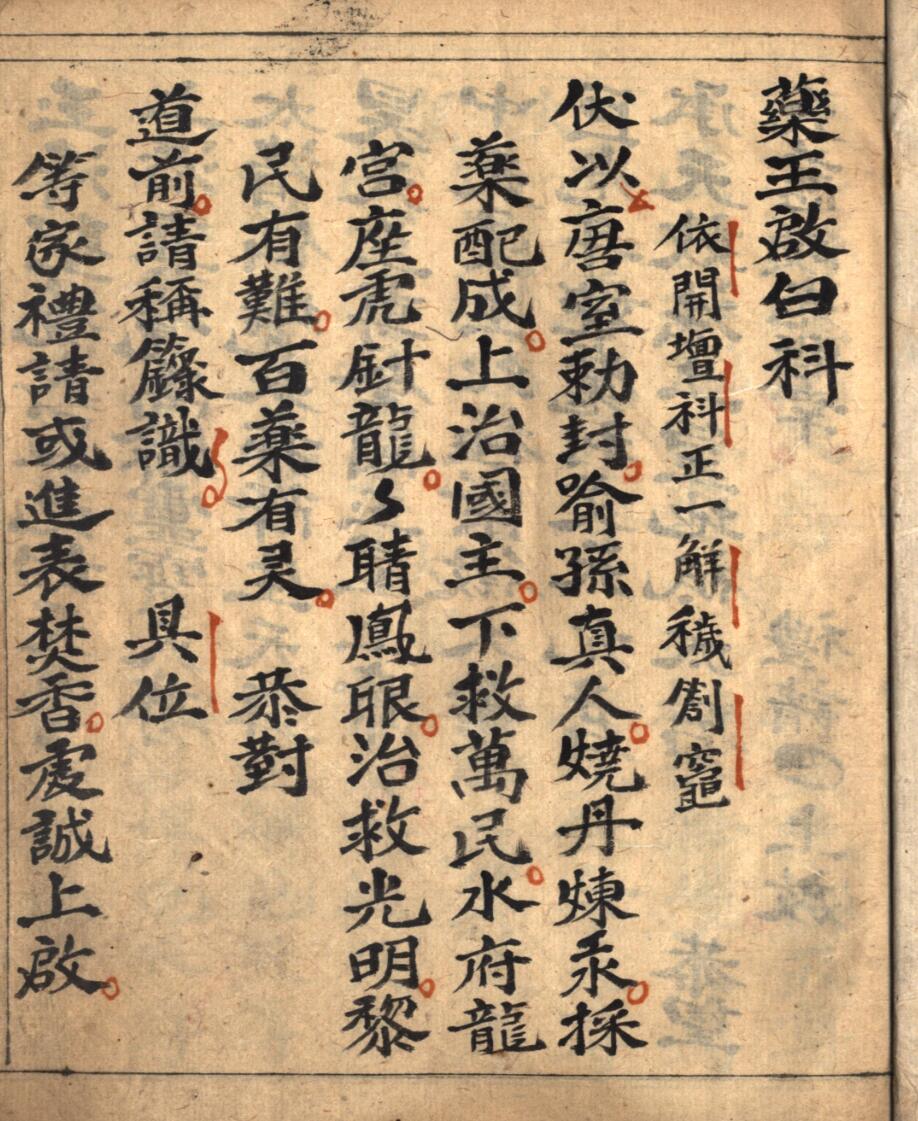 藥王啟白科
依開壇科正一解穢劄竈
伏以唐室勅封喻孫真人燒丹煉汞採
薬配成上治國主下救萬民水府龍
宮座虎針龍〻睛鳳眼治救光明黎
民有難百薬有灵 恭對
道前請稱籙識 具位
等家禮請或進表焚香虔誠上啟